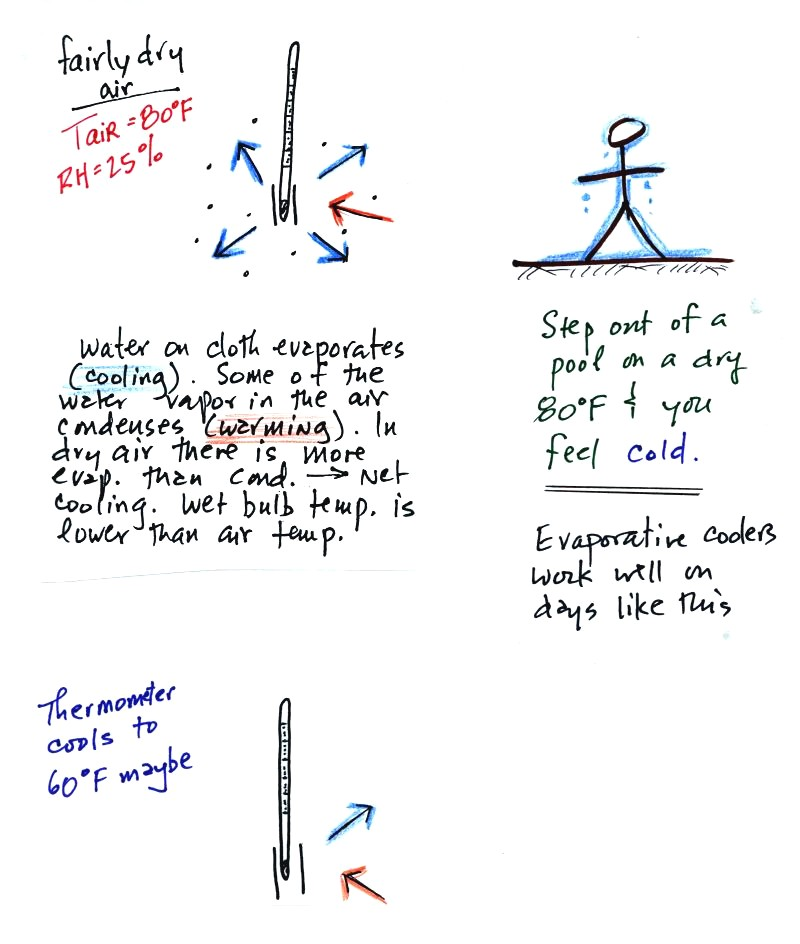 fairly dry
air
TAIR = 80°F
RH = 25%
Water on cloth evaporates
(cooling). Some of the
water vapor in the air
condenses (warming). In
dry air there is more
evap. than cond. → Net
cooling. Wet bulb temp. is
lower than air temp.
Step out of a
pool on a dry
80°F & you
feel cold.
Evaporative coolers
work well on
days like this
Thermometer
cools to
60°F maybe